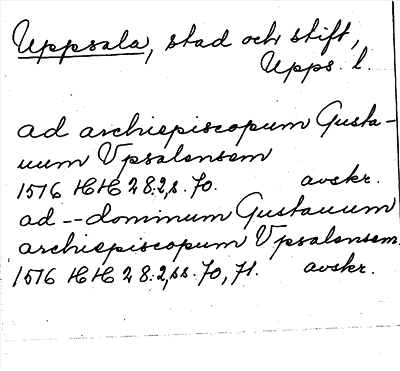 Uppsala, stad och stift,
Upps. l.
ad archiepiscopum Gusta-
uum Vpsalensem
1516 HH 28:2, s. 70. avskr.
ad -- dominum Gustauum
archiepiscopum Vpsalensem.
1516 HH 28:2, ss. 70, 71. avskr.